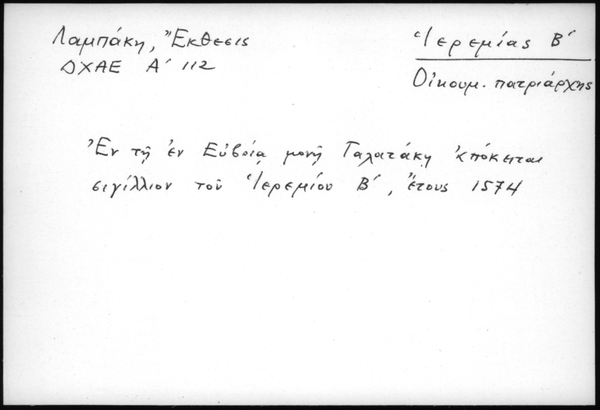 Λαμπάκη, Ἔκθεσις
ΔΧΑΕ Α´ 112
Ἱερεμίας Β´
Οἰκουμ. πατριάρχης
Ἐν τῇ ἐν Εὐβοίᾳ μονῇ Γαλατάκη ἀπόκειται
σιγίλλιον τοῦ Ἱερεμίου Β´, ἔτους 1574